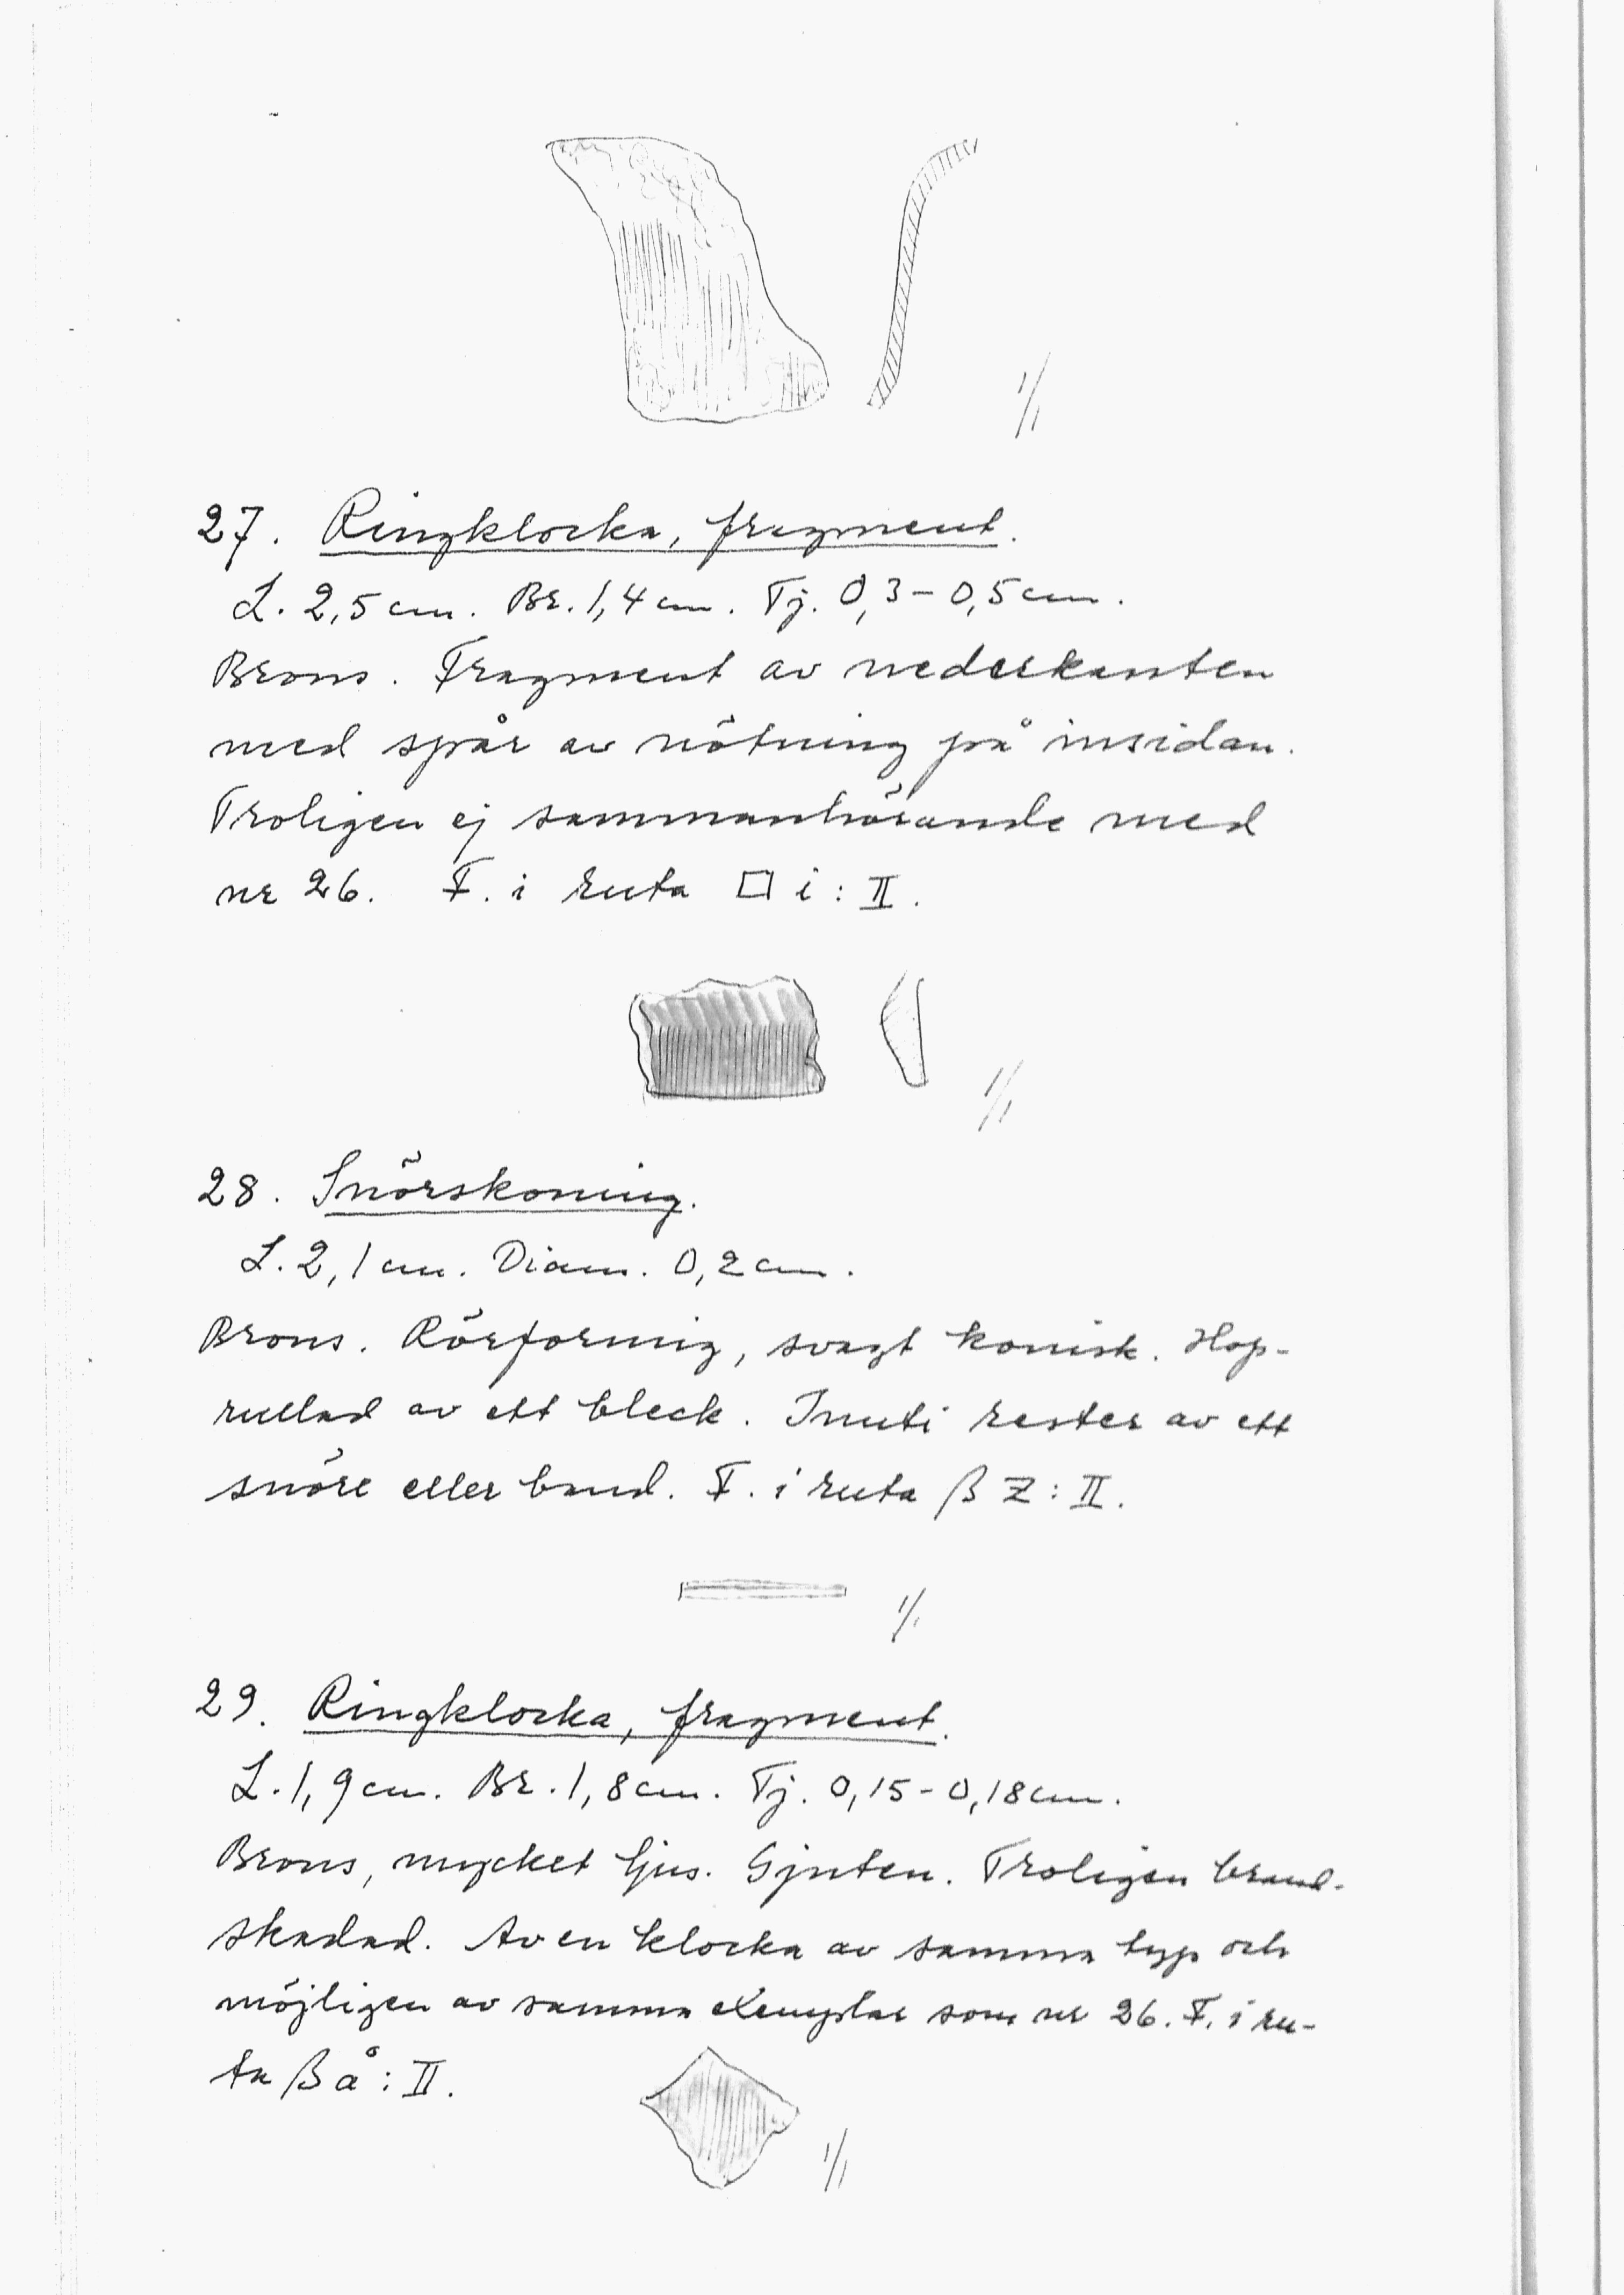 1/1
27. Ringklocka, fragment.
L. 2,5 cm. Br. 1,4 cm. Tj. 0,3 – 0,5 cm.
Brons. Fragment av nederkanten
med spår av nötning på insidan.
Troligen ej sammanhörande med
nr 26. F. i ruta □ i : II.
1/1
28. Snörskoning.
L. 2,1 cm. Diam. 0,2 cm.
Brons. Rörformig, svagt konisk. Hop-
rullad av ett bleck. Inuti rester av ett
snöre eller band. F. i ruta ß Z : II.
1/1
29. Ringklocka, fragment.
L. 1,9 cm. Br. 1,8 cm. Tj. 0,15 - 0,18 cm.
Brons, mycket ljus. Gjuten. Troligen brand-
skadad. Av en klocka av samma typ och
möjligen av samma exemplar som nr 26. F. i ru-
ta ß å : II.
1/1